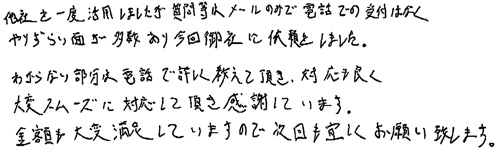 他社を一度活用しましたが質問等はメールのみで電話での受付はなく
やりずらい面が多数あり今回御社に依頼をしました。
わからない部分は電話で詳しく教えて頂き、対応も良く
大変スムーズに対応して頂き感謝しています。
金額も大変満足していますので次回も宜しくお願い致します。